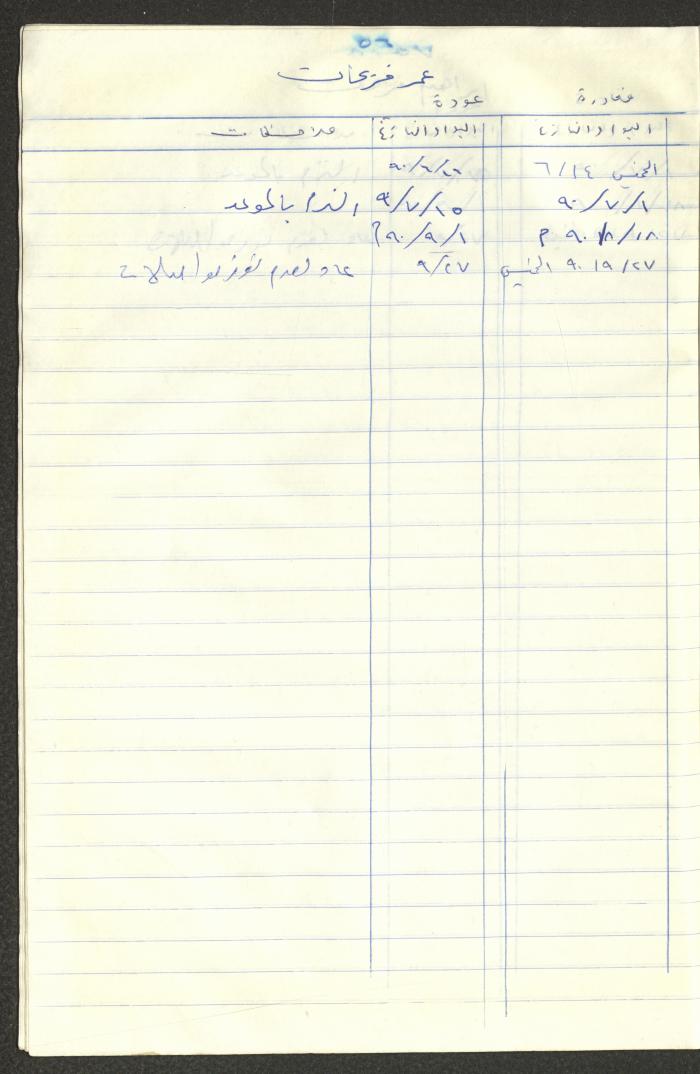 ٥٦
عمر فريحات
مغادرة عودة
اليوم والتاريخ اليوم والتاريخ ملاحظات
الخميس ٦/١٤ ٩٠/٦/
٩٠/٧/١ ٩/٧/١٥ التزم بالموعد
٩٠/٨/١٨ م ٩٠/٩/١
٩٠/٩/٢٧ الخميس ٩/٢٧ عاد لعدم توفر المواصلات